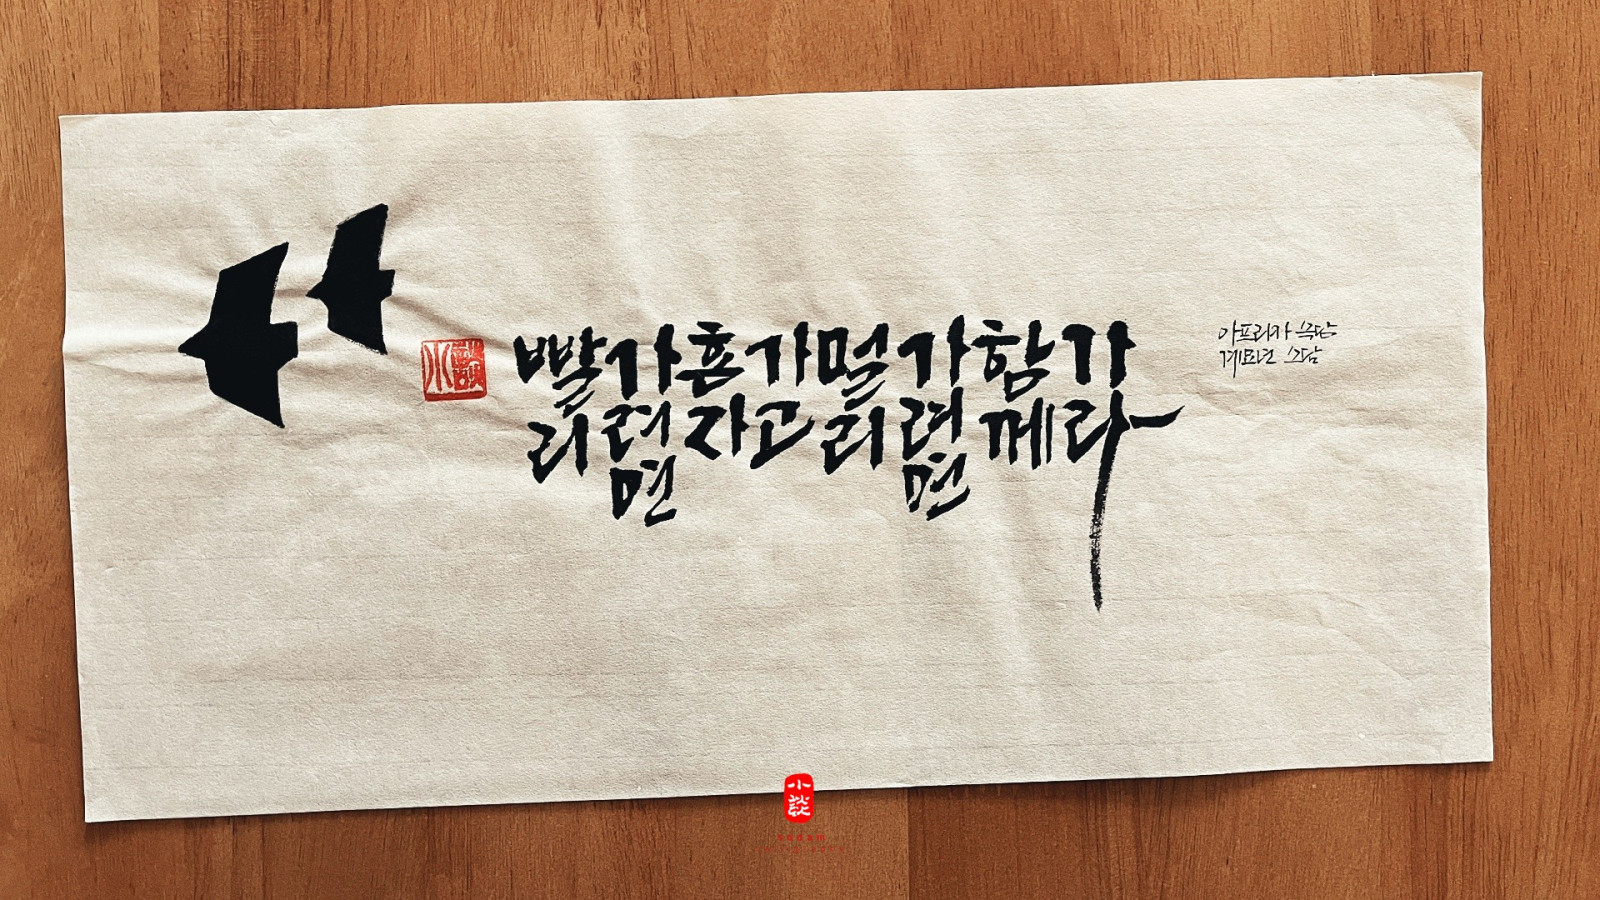 빨리
가려면
혼자
가고
멀리
가려면
함께
가라
아프리카 속담
계묘년 소담
小談
小談
sodam